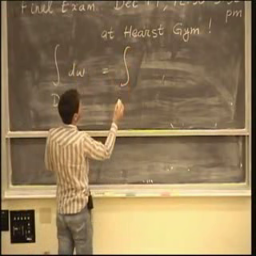 Final Exam Dec
pm
at Hearst Gym !
∫ dω = ∫
D